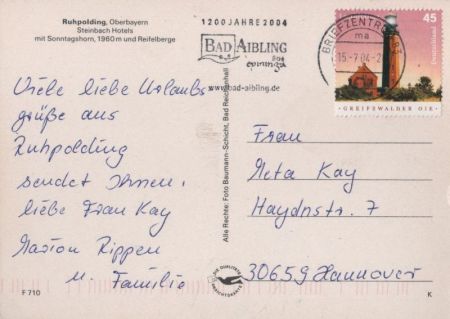 Ruhpolding, Oberbayern
Steinbach Hotels
mit Sonntagshorn, 1960 m und Reifelberge
1200 JAHRE 2004
BAD AIBLING
www.bad-aibling.de
BRIEFZENTRUM 83
ma
15.-7.04-2
45
Deutschland
GREIFSWALDER OIE
Viele liebe Urlaubs
grüße aus
Ruhpolding
sendet Ihnen,
liebe Frau Kay
Marion Rippen
u. Familie
Alle Rechte: Foto Baumann-Schicht, Bad Reichenhall
Frau
Meta Kay
Haydnstr. 7
30659 Hannover
DIE QUALITÄTS
ANSICHTSKARTE
F 710
K